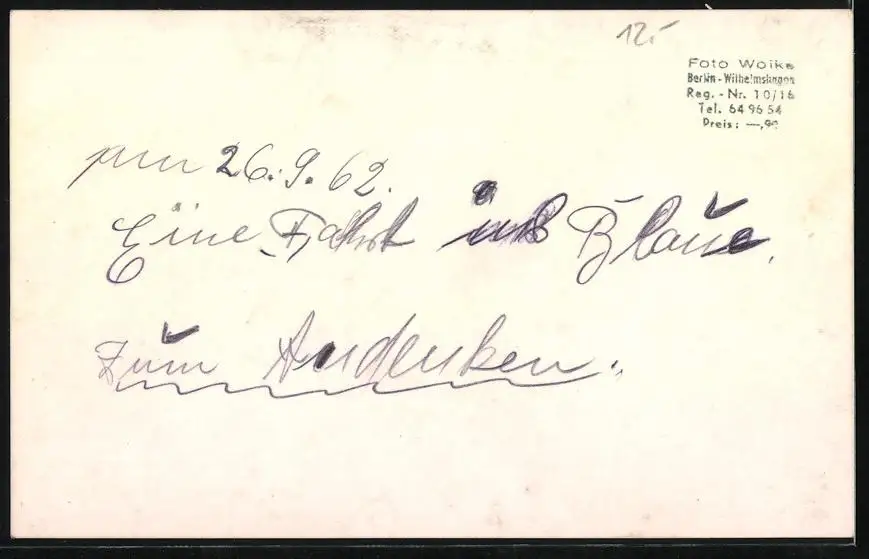 12.-
Foto Woike
Berlin-Wilhelmshagen
Reg.-Nr. 10/16
Tel. 64 96 54
Preis: —,90
am 26.9.62.
Eine Fahrt ins Blaue.
Zum Andenken.